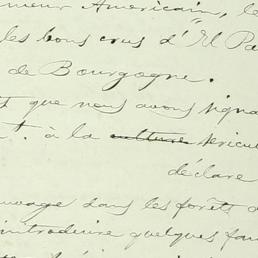 Américain, le
les bons crus d'"El Pa
de Bourgogne.
que nous avons signa
t. à la culture sericu
déclare
uvage dans les forêts d
introduire quelques fau